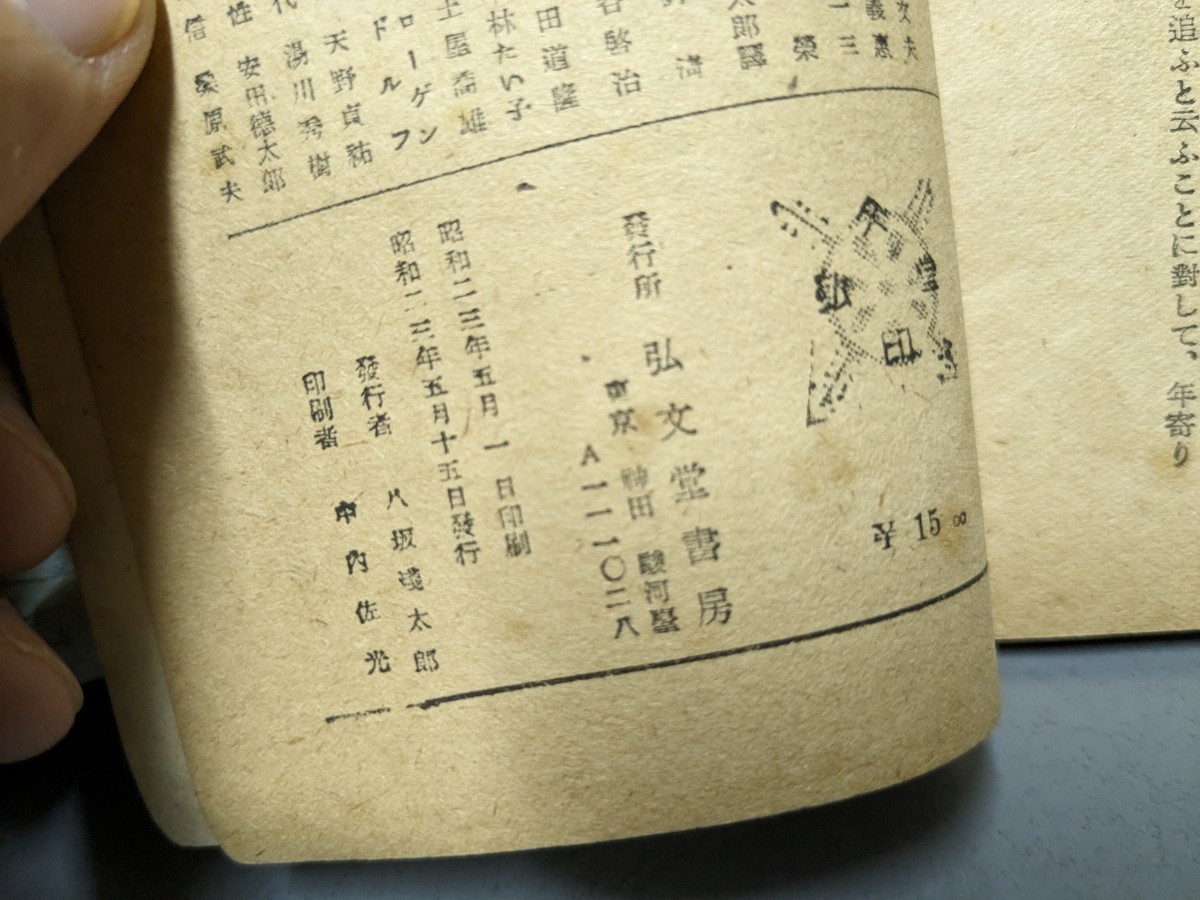 を追ふと云ふことに對して、年寄り
次夫
義惠
一三
榮
太郎譯
清
谷啓治
田道隆
林たい子
土屋喬雄
ローゲン
ドルフ
天野貞祐
代 湯川秀樹
性 安田德太郎
信 桑原武夫
印
¥15.00
發行所 弘文堂書房
東京 神田 駿河臺
A一一一〇二八
昭和二三年五月一日印刷
昭和二三年五月十五日發行
發行者 八坂淺太郎
印刷者 中内佐光